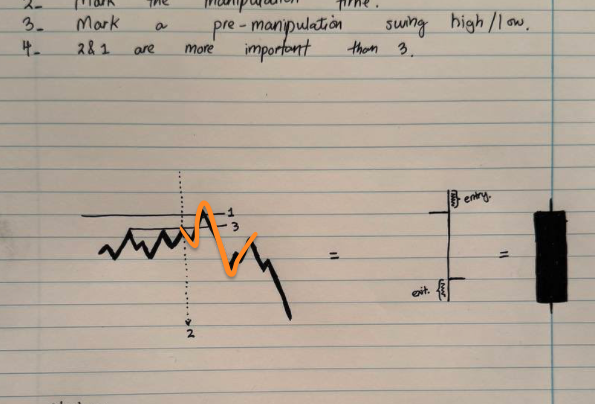 2- Mark the manipulation time.
3- Mark a pre-manipulation swing high/low.
4- 2&1 are more important than 3.
1
3
2
=
entry.
exit.
=